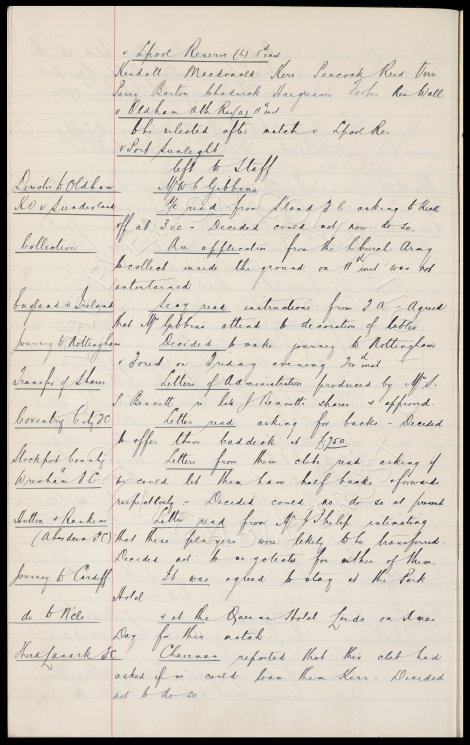 v Lpool Reserve (h) 8th inst
Kendall Macdonald Kerr Peacock Reid Virr
Parry Barton Chadwick Hargreaves Forbes Rea Wall
v Oldham Ath Res (a) 11th inst
to be selected after match v Lpool Res
v Port Sunlight
left to Staff
Director to Oldham Mr W C Gibbins
KO v Sunderland Lr read from Sland F C asking to kick
off at 3 oc - Decided could not now do so.
Collection An application from the Liberal Army
to collect inside the ground on 11th inst was not
entertained.
England v Ireland Secy read instructions from F A - Agreed
that Mr Gibbins attend to decoration of tables.
Journey to Nottingham Decided to make journey to Nottingham
v Forest on Friday evening 3rd inst
Transfer of Shares Letters of Administration produced by Mr S.
S. Bennett, re late J Bennetts shares & approved.
Coventry City FC Letter read asking for backs - Decided
to offer them Caddick at £750
Stockport County Letters from these clubs read asking if
Wrexham FC we could let them have half backs & forwards
respectively - Decided could not do so at present
Hutton & Rankine Letter read from Mr J Philip intimating
(Aberdeen FC) that these players were likely to be transferred.
Decided not to negotiate for either of them.
Journey to Cardiff It was agreed to stay at the Park
Hotel.
do to N'cle. & at the Queens Hotel Leeds on Xmas
Day for this match
Third Lanark FC Chairman reported that this club had
asked if we could loan them Kerr - Decided
not to do so